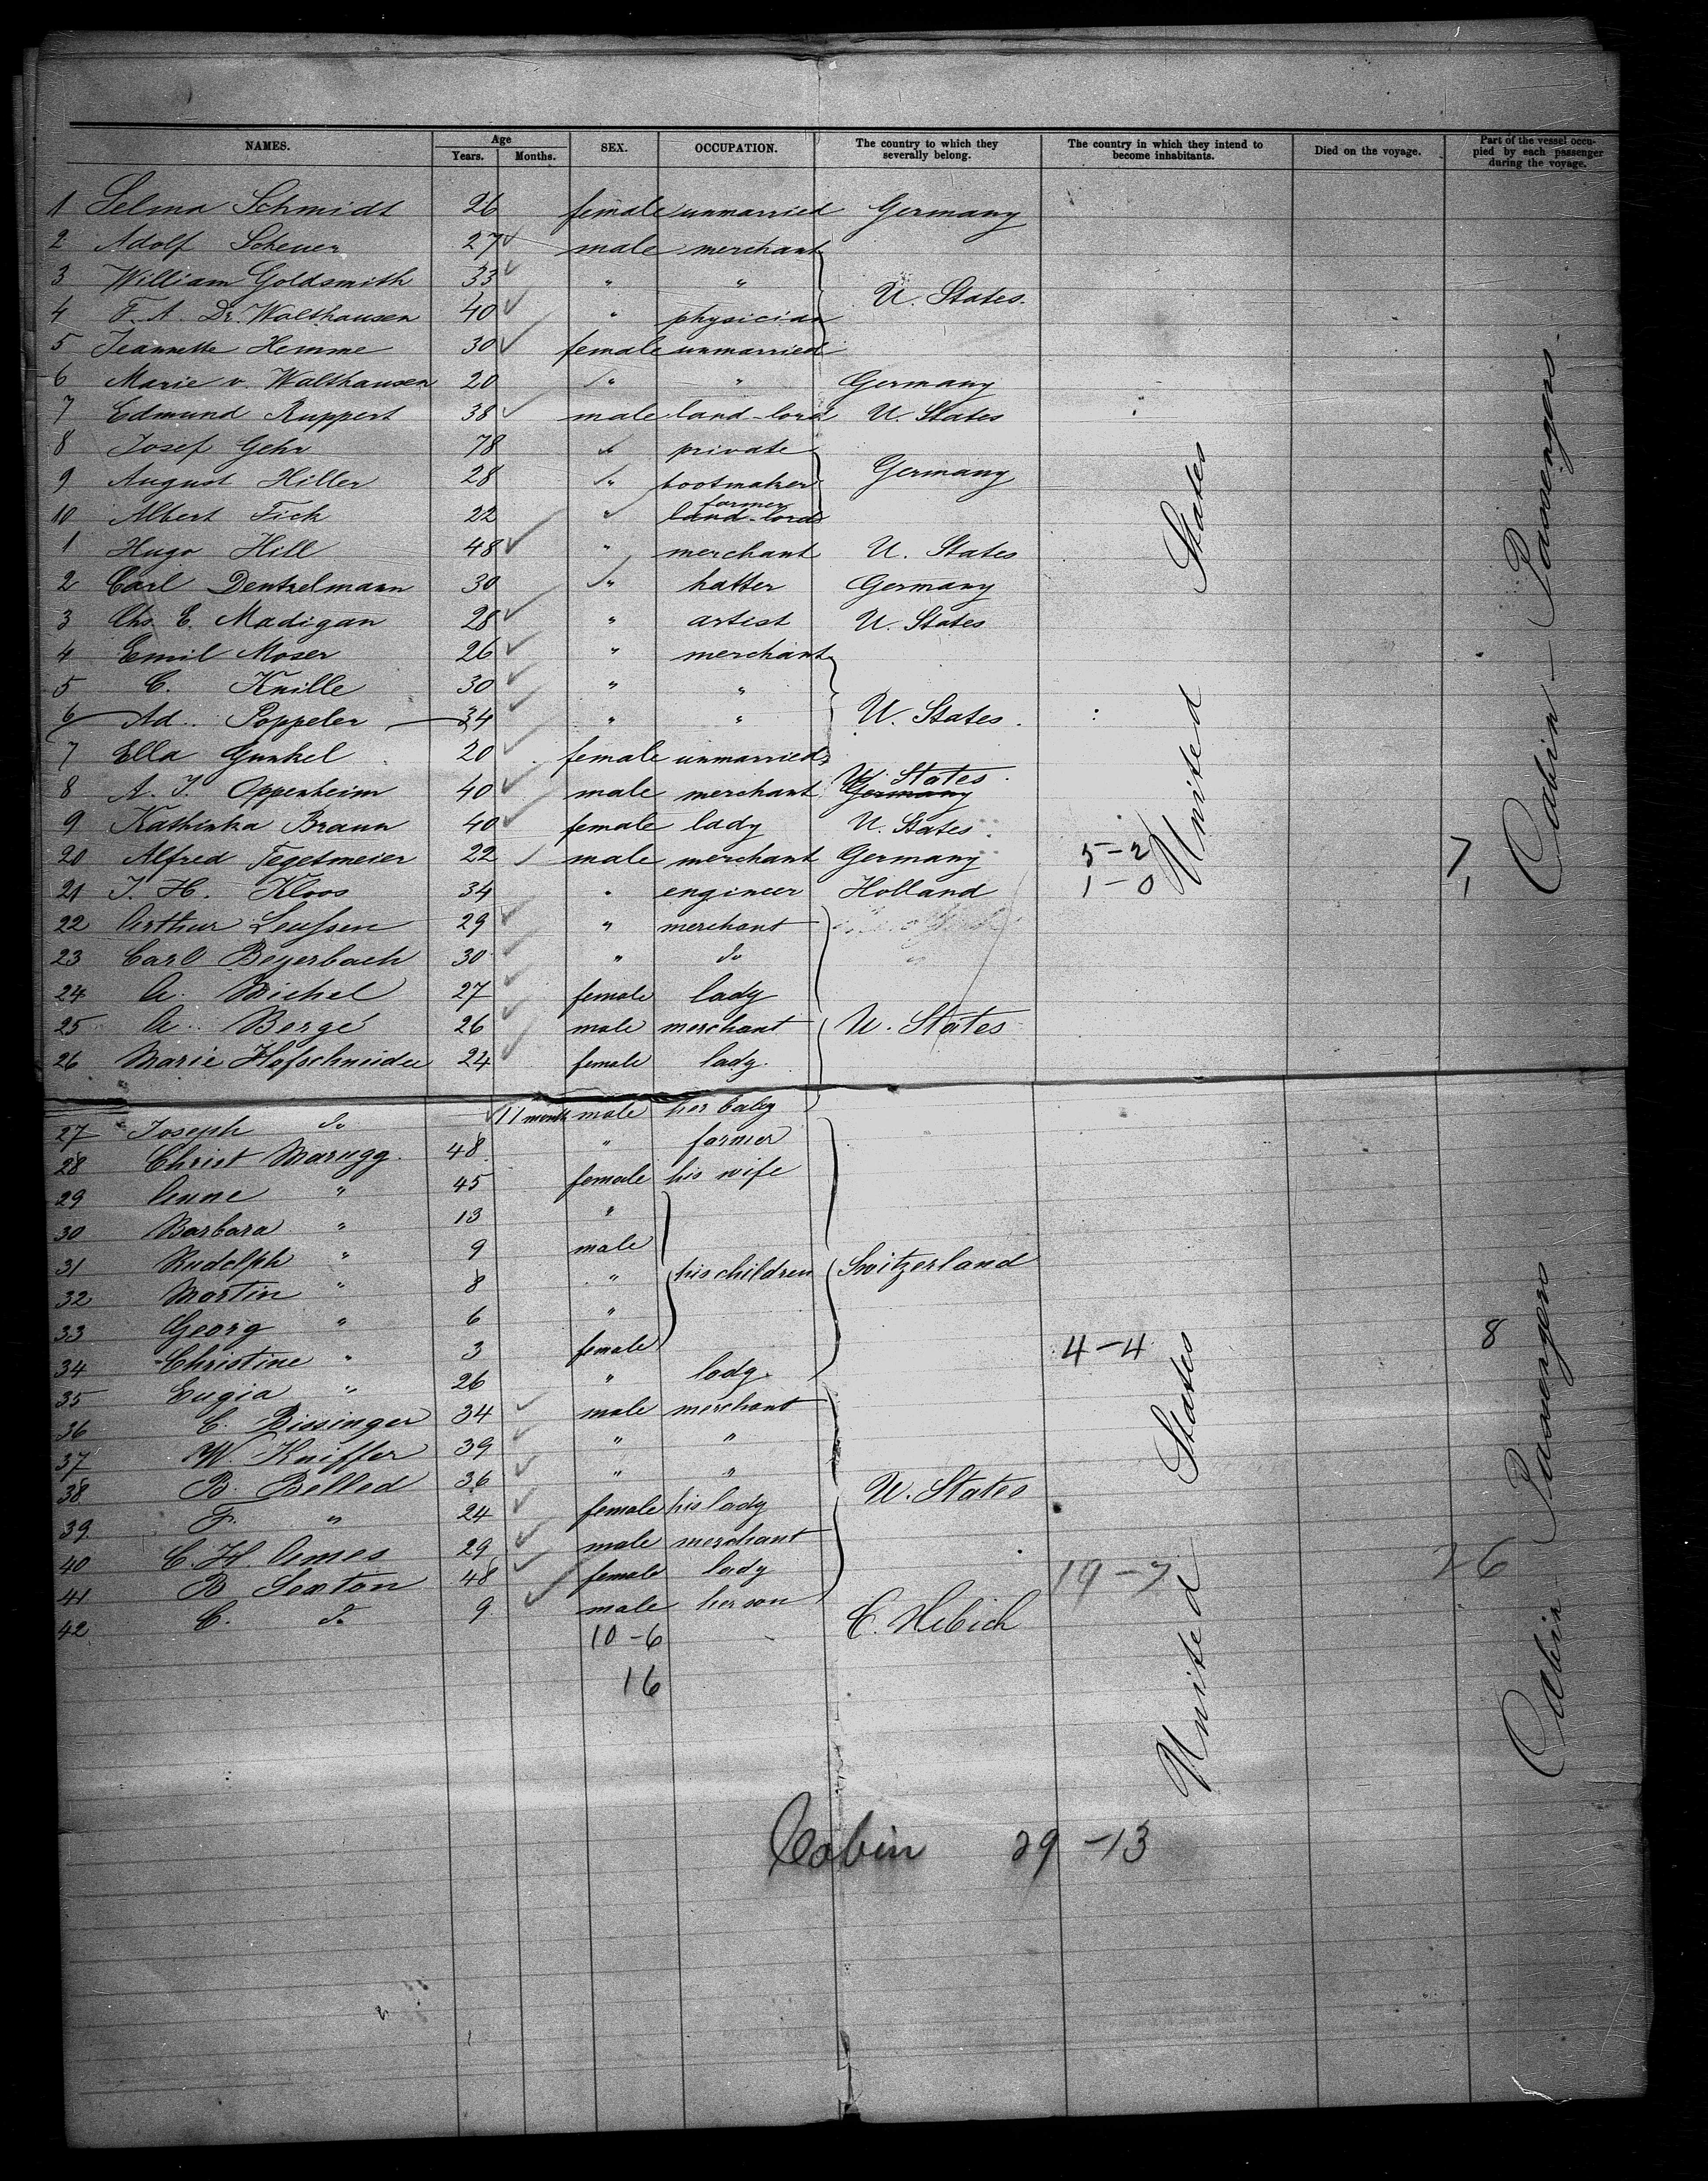 NAMES. Age Years. Months. SEX. OCCUPATION. The country to which they severally belong. The country in which they intend to become inhabitants. Died on the voyage. Part of the vessel occupied by each passenger during the voyage.
1 Selma Schmidt 26 female unmarried Germany
2 Adolf Scheuer 27 male merchant
3 William Goldsmith 33 " "
U. States.
4 F. A. Dr. Walthausen 40 " physician
5 Jeannette Hemme 30 female unmarried
6 Marie v. Walthausen 20 " " Germany
7 Edmund Ruppert 38 male land-lord U. States
8 Josef Gehr 78 " private
Germany
9 August Hiller 28 " bootmaker
farmer
10 Albert Fick 22 " land-lord
1 Hugo Hill 48 " merchant U. States
2 Carl Dentzelmann 30 " hatter Germany
3 Chs. E. Madigan 28 " artist U. States
4 Emil Moser 26 " merchant
5 C. Knille 30 " "
6 Ad. Poppeler 34 " " U. States.
7 Ella Gunkel 20 female unmarried
U. States.
8 A. J. Oppenheim 40 male merchant Germany
9 Kathinka Braun 40 female lady U. States.
20 Alfred Tegetmeier 22 male merchant Germany 5-2 7
21 J. H. Kloos 34 " engineer Holland 1-0 1
22 Arthur Leussen 29 " merchant
23 Carl Beyerbach 30 " do
24 A. Michel 27 female lady
25 A. Bergé 26 male merchant U. States
26 Marie Hofschneider 24 female lady.
27 Joseph do 11 month male her baby
28 Christ Marugg. 48 " farmer
29 Anne " 45 female his wife
30 Barbara " 13 "
31 Rudolph " 9 male
his children Switzerland
32 Martin " 8 "
33 Georg " 6 "
34 Christine " 3 female 4-4 8
35 Eugia " 26 " lady
36 C. Bissinger 34 male merchant
37 W. Kniffer 39 " "
38 B. Belled 36 " "
U. States
39 F. " 24 female his lady
40 C. H. Ames 29 male merchant
41 B. Sexton 48 female lady 19-7 26
42 C. do 9 male her son
C. Hebich
10-6
16
United States
Cabin-Passengers.
United States
Cabin Passengers
Cabin 29-13